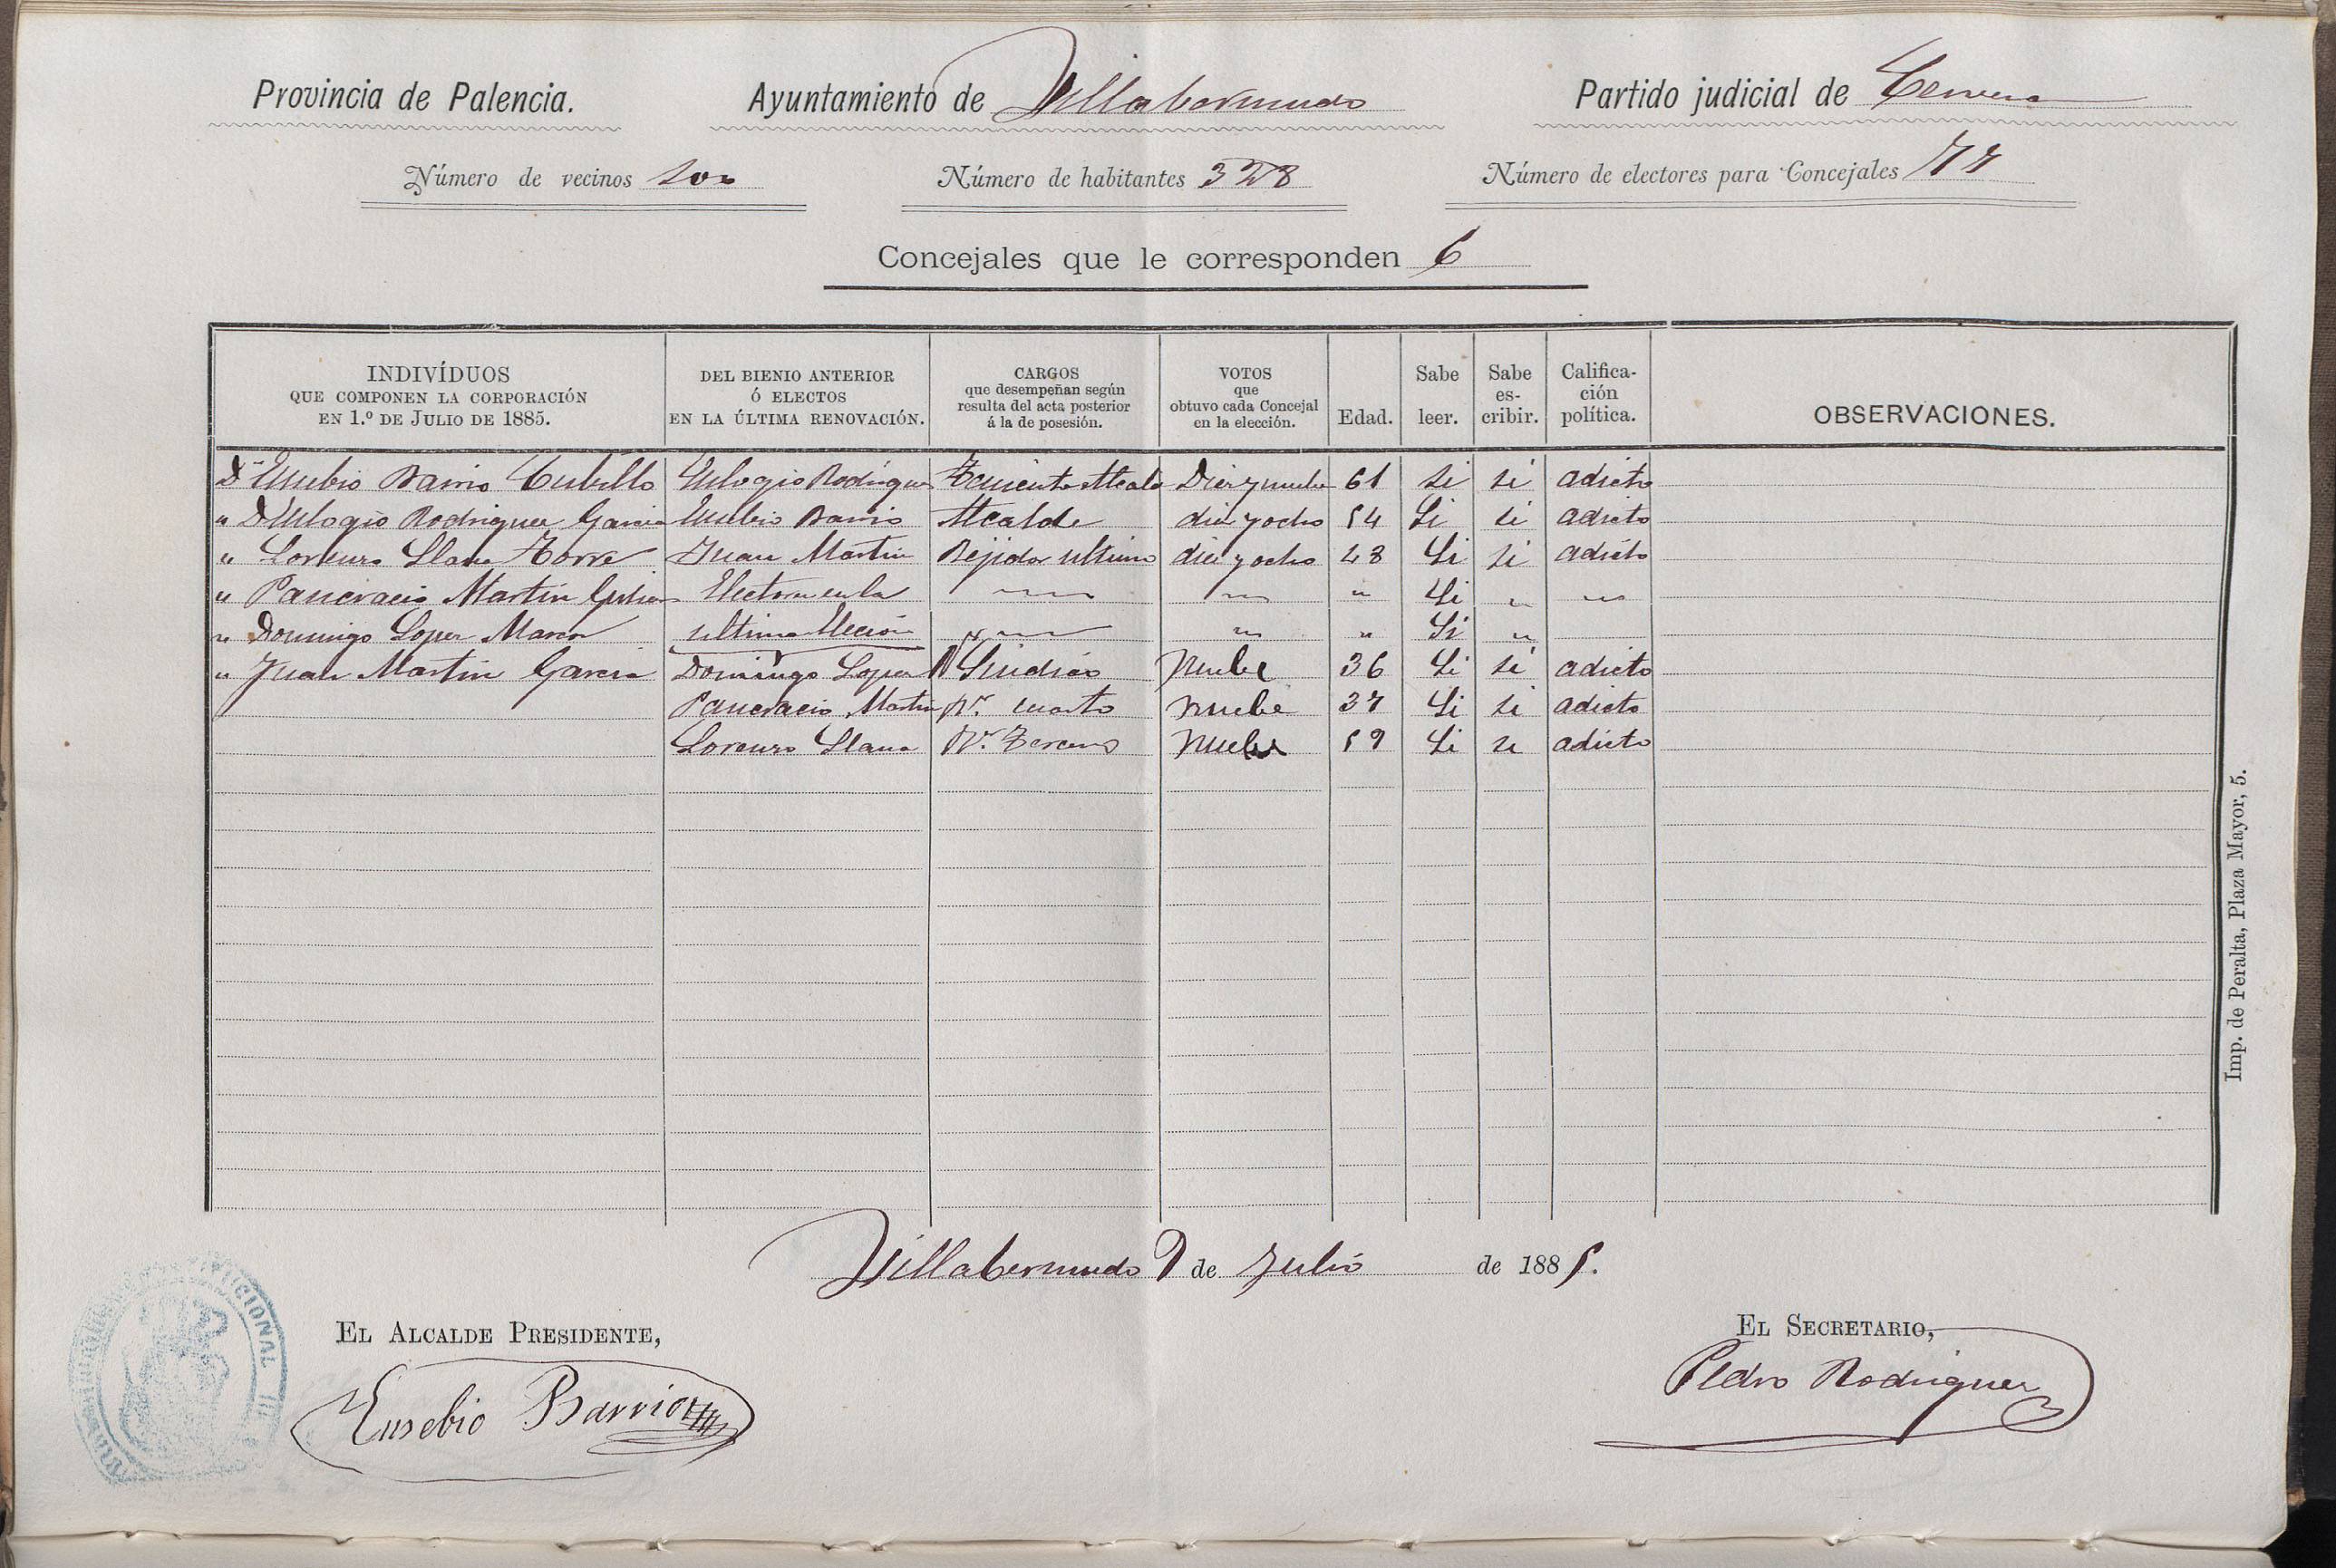 Provincia de Palencia. Ayuntamiento de Villabermudo Partido judicial de Cervera
Número de vecinos 100 Número de habitantes 328 Número de electores para Concejales 77
Concejales que le corresponden 6
INDIVÍDUOS QUE COMPONEN LA CORPORACIÓN EN 1.º DE JULIO DE 1885. DEL BIENIO ANTERIOR Ó ELECTOS EN LA ÚLTIMA RENOVACIÓN. CARGOS que desempeñan según resulta del acta posterior á la de posesión. VOTOS que obtuvo cada Concejal en la elección. Edad. Sabe leer. Sabe es- cribir. Califica- ción política. OBSERVACIONES.
Dn Eusebio Barrio Cubillo Eulogio Rodriguez Teniente Alcalde Diez y nuebe 61 si si adicto
" D Eulogio Rodriguez Garcia Eusebio Barrio Alcalde diez y ocho 54 Si si adicto
" Lorenzo Llana Torre Juan Martin Rejidor ultimo diez y ocho 48 Si si adicto
" Pancracio Martin Electos en la " Si "
" Domingo Lopez ultima Elecion " " " Si "
" Juan Martin Garcia Domingo Lopez Sindico Nuebe 36 Si si adicto
Pancracio Martin Rr. cuarto nuebe 37 Si si adicto
Lorenzo Llana Rr. Tercero Nuebe 59 Si si adicto
Villabermudo 9 de Julio de 1885.
EL ALCALDE PRESIDENTE, EL SECRETARIO,
Eusebio Barrio Pedro Rodriguez
Imp. de Peralta, Plaza Mayor, 5.